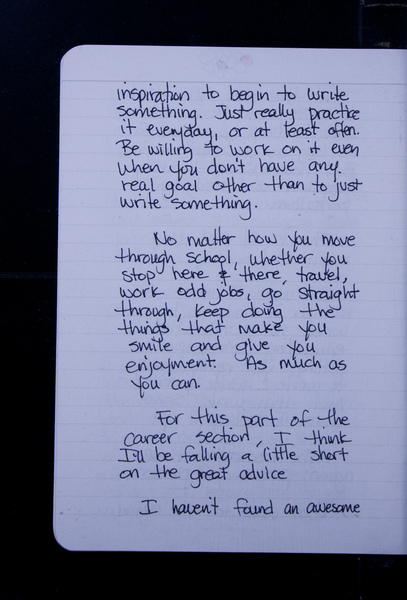 inspiration to begin to write
something. Just really practice
it everyday, or at least often.
Be willing to work on it even
when you don't have any
real goal other than to just
write something.
No matter how you move
through school, whether you
stop here & there, travel,
work odd jobs, go straight
through, keep doing the
things that make you
smile and give you
enjoyment. As much as
you can.
For this part of the
career section, I think
I'll be falling a little short
on the great advice
I haven't found an awesome